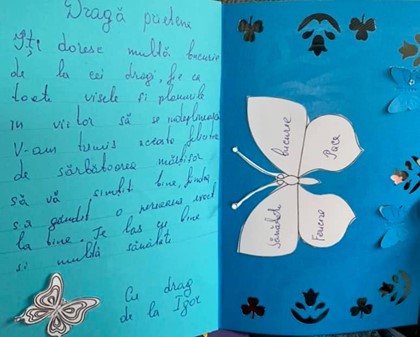 Dragă prietene
Îți doresc multă bucurie
de la cei dragi, fie ca
toate visele si planurile
in viitor să se
V-am trimis aceste
de sărbătoarea
să vă simțiți bine, fiindcă
s-a gândit o persoană
la tine. Te las cu bine
si multă sănătate
Cu drag
de la Igor
bucurie
Pace
Sănătate
Fericire